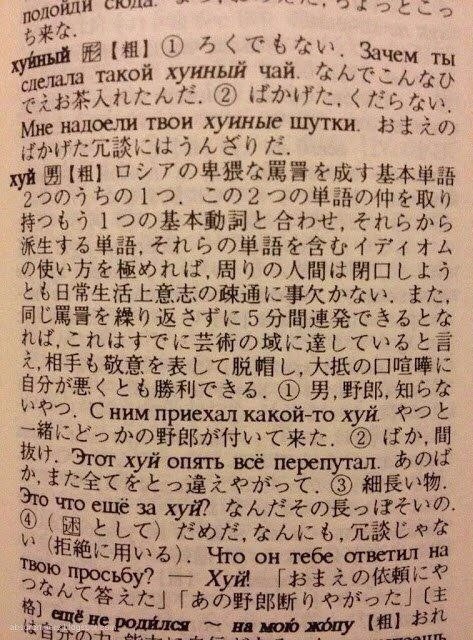 подойди сюда.
ち来な.
хуйный 形【粗】① ろくでもない. Зачем ты
сделала такой хуиный чай. なんでこんなひ
でえお茶入れたんだ. ② ばかげた, くだらない.
Мне надоели твои хуиные шутки. おまえの
ばかげた冗談にはうんざりだ.
хуй 男【粗】ロシアの卑猥な罵詈を成す基本単語
2つのうちの1つ. この2つの単語の仲を取り
持つもう1つの基本動詞と合わせ, それらから
派生する単語, それらの単語を含むイディオム
の使い方を極めれば, 周りの人間は閉口しよう
とも日常生活上意志の疎通に事欠かない. また,
同じ罵詈を繰り返さずに5分間連発できるとな
れば, これはすでに芸術の域に達していると言
え, 相手も敬意を表して脱帽し, 大抵の口喧嘩に
自分が悪くとも勝利できる. ① 男, 野郎, 知らな
いやつ. С ним приехал какой-то хуй. やつと
一緒にどっかの野郎が付いて来た. ② ばか, 間
抜け. Этот хуй опять всё перепутал. あのば
か, また全てをとっ違えやがって. ③ 細長い物.
Это что ещё за хуй? なんだその長っぽそいの.
④ (述 として) だめだ, なんにも, 冗談じゃな
い (拒絶に用いる). Что он тебе ответил на
твою просьбу? — Хуй! 「おまえの依頼にや
つなんて答えた」「あの野郎断りやがった」[主
格] ещё не родился ~ на мою жопу【粗】おれ